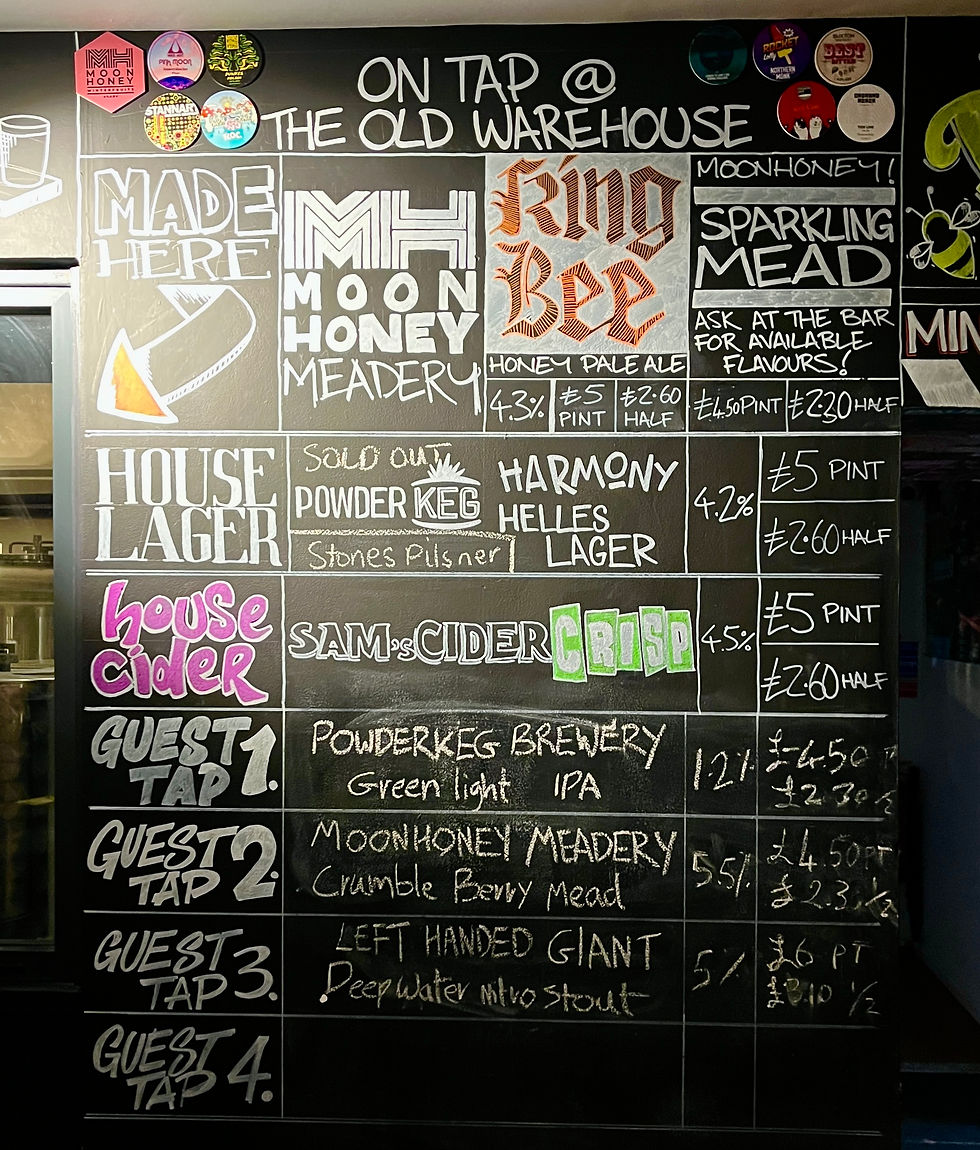 MH
MOON
HONEY
PINK MOON
STANNARY
ROCKET
Lolly
NORTHERN
MONK
BUXTON
BEST
ON TAP @
THE OLD WAREHOUSE
MADE
HERE
MH
MOON
HONEY
MEADERY
King
Bee
HONEY PALE ALE
4.3%
£5
PINT
£2.60
HALF
MOONHONEY!
SPARKLING
MEAD
ASK AT THE BAR
FOR AVAILABLE
FLAVOURS!
£4.50 PINT
£2.30 HALF
MIN
HOUSE
LAGER
SOLD OUT
POWDER KEG
Stones Pilsner
HARMONY
HELLES
LAGER
4.2%
£5 PINT
£2.60 HALF
house
cider
SAM'S CIDER CRISP
4.5%
£5 PINT
£2.60 HALF
GUEST
TAP 1.
POWDERKEG BREWERY
Green light IPA
1.2%
£4.50 P
£2.30 ½
GUEST
TAP 2.
MOONHONEY MEADERY
Crumble Berry Mead
5.5%
£4.50 PT
£2.30 ½
GUEST
TAP 3.
LEFT HANDED GIANT
Deep Water nitro Stout
5%
£6 PT
£3.10 ½
GUEST
TAP 4.